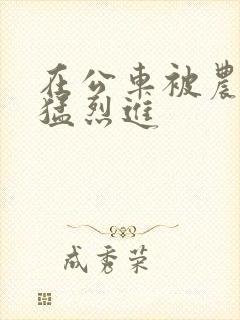 在公车被農
猛烈进
成秀荣